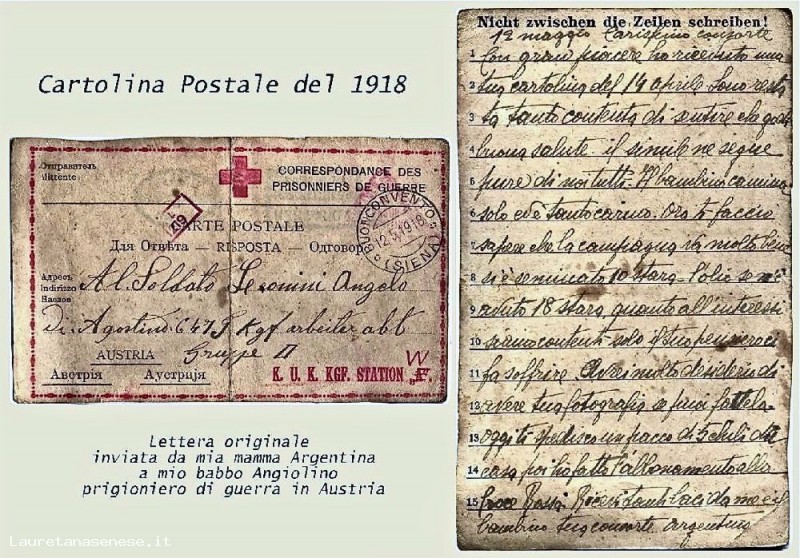 Cartolina Postale del 1918
Отправитель
CORRESPONDANCE DES
PRISONNIERS DE GUERRE
CARTE POSTALE
BUONCONVENTO
(SIENA)
Для Отвѣта — RISPOSTA — Одговор
Адресъ
Indirizzo
Наслов
Al Soldato Leonini Angelo
di Agostino 647 J. Kgf. arbeiter abt
Gruppe II
AUSTRIA
Австрія Аустрија
W
K. U. K. KGF. STATION „F.
Lettera originale
inviata da mia mamma Argentina
a mio babbo Angiolino
prigioniero di guerra in Austria
Lauretanasenese.it
Nicht zwischen die Zeilen schreiben!
12 maggio Carissimo consorte
1 Con gran piacere ho riceduto una
2 tua cartolina del 19 aprile Sono resta
3 ta tanto contenta di sentire che godi
4 buona salute il simile ne segue
5 pure di noi tutti. Il bambino camina
6 solo ed è tanto carino. Ora ti faccio
7 sapere che la campagna va molto bene
8 si è seminato 10 stara L'olio se n'è
9 avuto 18 stara, quanto all'interessi
10 siamo contenti solo il tuo pensiero ci
11 fa soffrire. Avrei molto desiderio di
12 avere tua fotografia se puoi fattela
13 oggi ti spedisco un pacco di 5 chili di
14 casa poi ho fatto l'abbonamento alla
15 Croce Rossa Ricevi tanti baci da me e il
bambino tua consorte Argentina